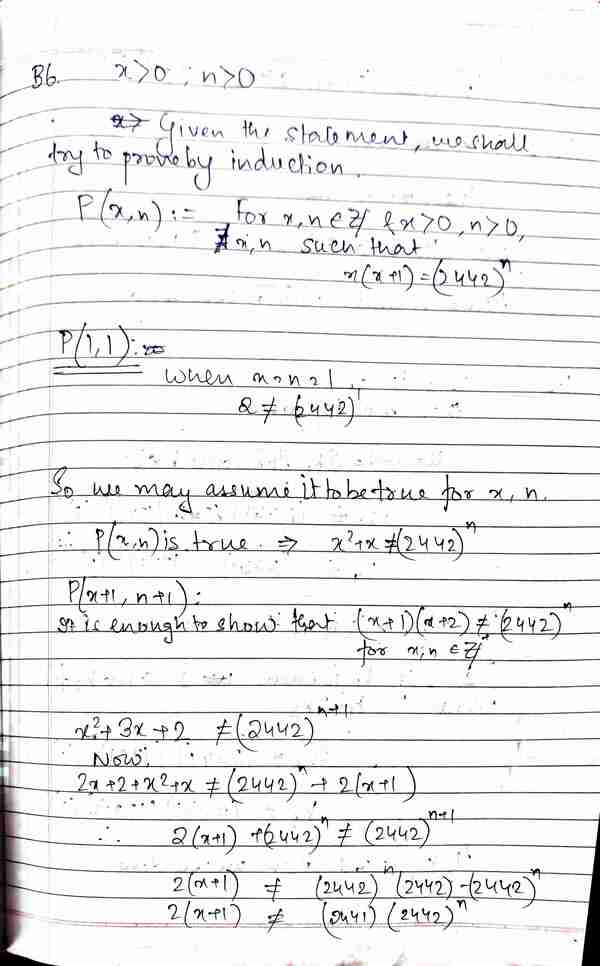 B6. x>0 ; n>0
Given the statement, we shall
try to prove by induction.
P(x,n) := For x,n∈Z & x>0, n>0,
∄ x,n such that
x(x+1)=(2442)^n
P(1,1):-
When x=n=1,
2 ≠ (2442)^1
So we may assume it to be true for x, n.
∴ P(x,n) is true ⇒ x²+x ≠ (2442)^n
P(x+1, n+1):
It is enough to show that (x+1)(x+2) ≠ (2442)^n
for x,n ∈ Z⁺
x²+3x+2 ≠ (2442)^{n+1}
Now,
2x+2+x²+x ≠ (2442)^n + 2(x+1)
∴ 2(x+1) + (2442)^n ≠ (2442)^{n+1}
2(x+1) ≠ (2442)^n (2442) - (2442)^n
2(x+1) ≠ (2441) (2442)^n